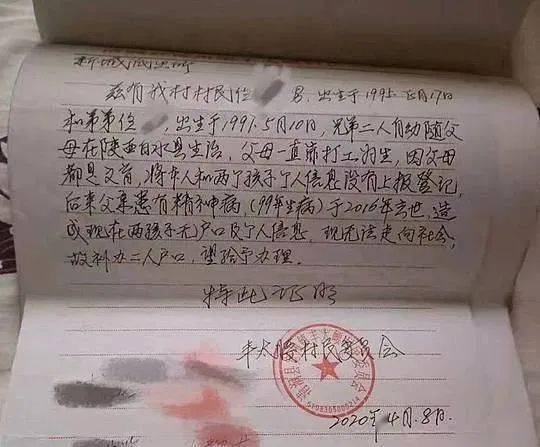 新城派出所
兹有我村村民任 男,出生于1995 月17日
和弟弟任 ,出生于1991.5月10日,兄弟二人自幼随父
母在陕西白水县生活,父母一直靠打工为生,因父母
都是文盲,将本人和两个孩子个人信息没有上报登记,
后来父亲患有精神病,(99年生病)于2016年去世,造
成现在两孩子无户口及个人信息,现无法走向社会,
故补办二人户口,望给予办理.
特此证明
村民委员会
2020年4月8日.